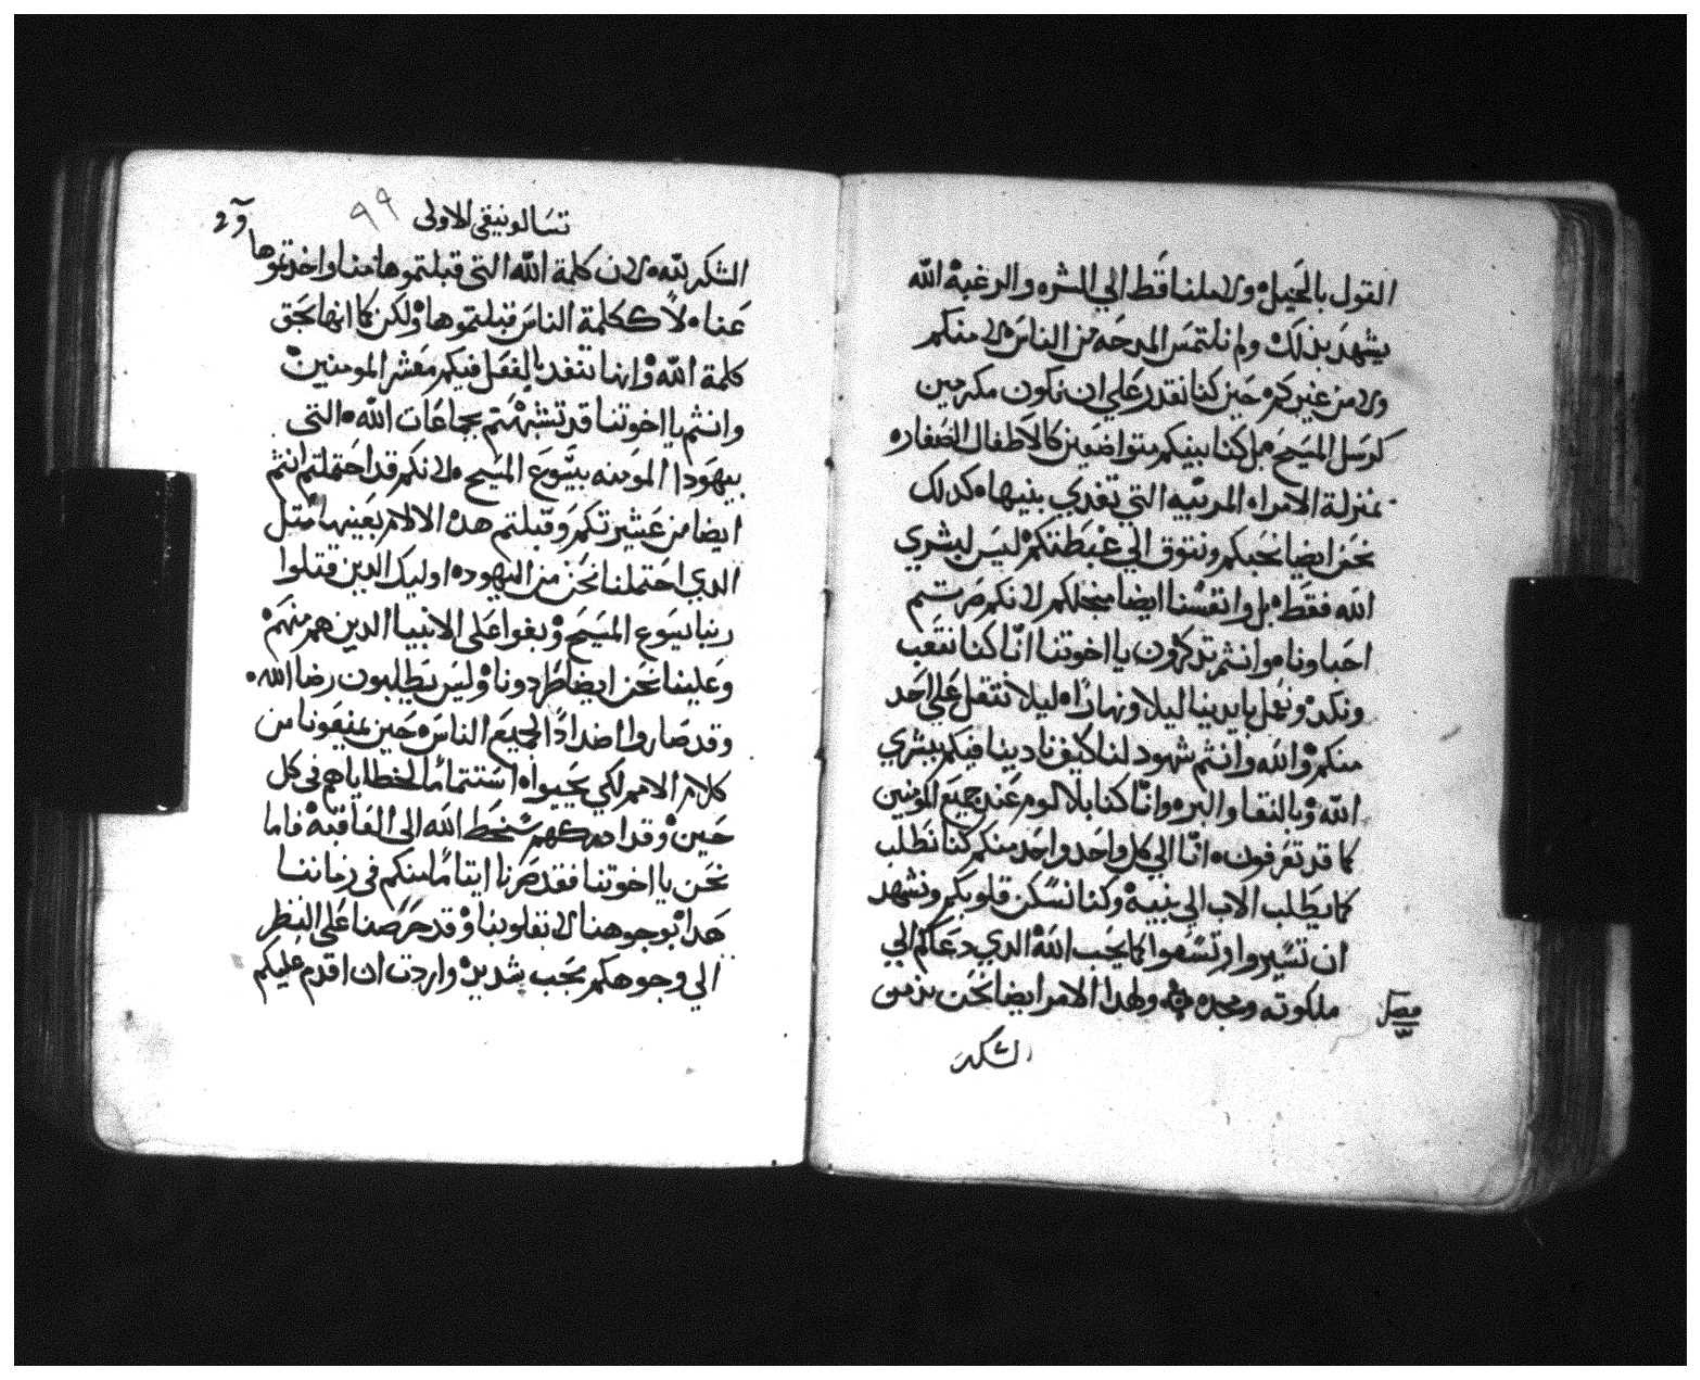 القول بالحيل ولا ملنا قط الي الشره والرغبه الله
يشهد بذلك ولم نلتمس المدحه من الناس لا منكم
ولا من غيركم حين كنا نقدر علي ان نكون مكرمين
كرسل المسيح بل كنا بينكم متواضعين كالاطفال الصغار
بمنزلة الامراه المربيه التي تغدي بنيها كدلك
نحن ايضا نحبكم ونتوق الي غبطتكم ليس لبشري
الله فقط بل وانفسنا ايضا منجلكم لانكم صرتم
احباونا وانتم تدكرون يا اخوتنا انا كنا نتعب
ونكد ونعمل بايدينا ليلا ونهارا ليلا نتقل علي احد
منكم والله وانتم شهود لنا كيف نادينا فيكم ببشري
الله وبالنقا والبر وانا كنا بلا لوم عند جميع المومنين
كما قد تعرفون انا الي كل واحد واحد منكم كنا نطلب
كما يطلب الاب الي بنيه وكنا نسكن قلوبكم ونشهد
ان تسيروا وتسعوا كما يحب الله الدي دعاكم الي
فصل ملكوته ومجده ولهدا الامر ايضا نحن نزمن
الشكر
تسالونيقي الاولى ٩٩
الشكر لله لان كلمة الله التي قبلتموها منا واخدتموها
عنا لا ككلمة الناس قبلتموها ولكن كما انها بحق
كلمة الله وانها تنفد بالفعل فيكم معشر المومنين
وانتم يا اخوتنا قد تشبهتم بجماعات الله التي
بيهودا المومنه بيسوع المسيح لانكم قد احتملتم انتم
ايضا من عشيرتكم وقبلتم هده الالام بعينها متل
الدي احتملنا نحن من اليهود اوليك الدين قتلوا
ربنا يسوع المسيح وبغوا على الانبيا الدين هم منهم
وعلينا نحن ايضا طردونا وليس يطلبون رضا الله
وقد صاروا اضدادا لجميع الناس حين يمنعونا من
كلام الامم لكي يحيوا استتماما لخطاياهم في كل
حين وقد ادركهم سخط الله الى العاقبه فاما
نحن يا اخوتنا فقد صرنا ايتاما منكم في زماننا
هدا بوجوهنا لا بقلوبنا وقد حرصنا على النظر
الي وجوهكم بحب شديد واردت ان اقدم عليكم